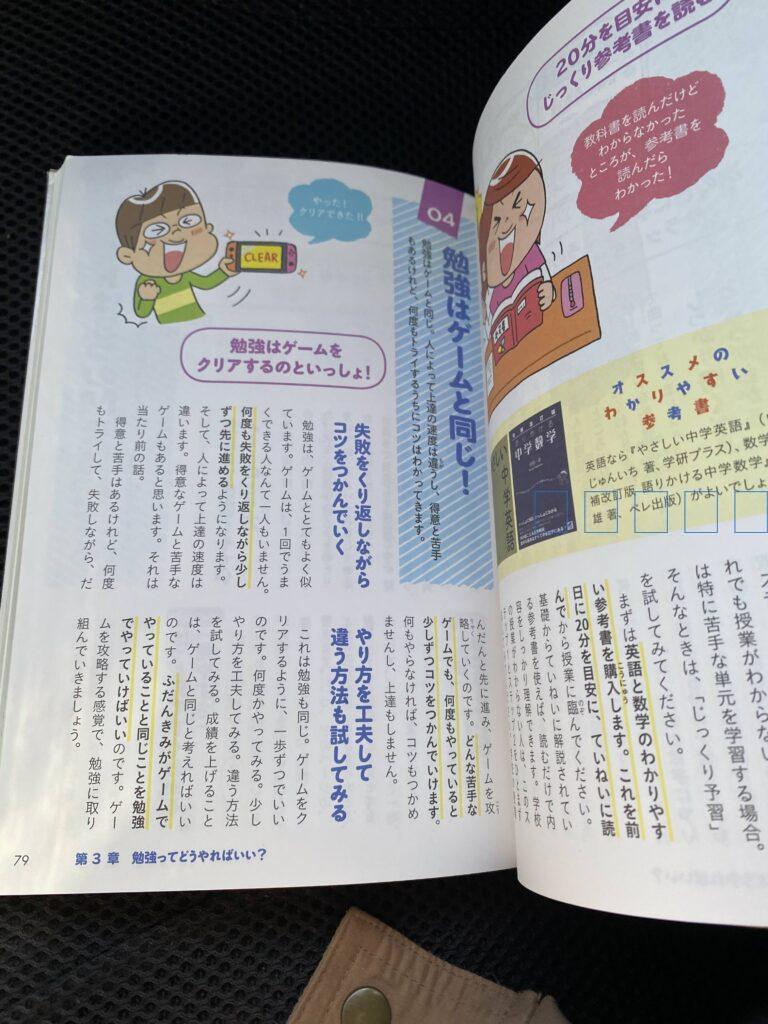 20分を目安に
じっくり参考書を読む
教科書を読んだけど
わからなかった
ところが、参考書を
読んだら
わかった！
オススメの
わかりやすい
参考書
英語なら『やさしい中学英語』
じゅんいち 著、学研プラス)、数学
補改訂版 語りかける中学数学』
雄 著、ベレ出版)がよいでしょ
中学数学
中学英語
れでも授業がわからない
は特に苦手な単元を学習する場合。
そんなときは、「じっくり予習」
を試してみてください。
まずは英語と数学のわかりやす
い参考書を購入します。これを前
こうにゅう
日に20分を目安に、ていねいに読
んでから授業に臨んでください。
のぞ
基礎からていねいに解説されてい
る参考書を使えば、読むだけで内
容をしっかり理解できます。学校
の授業がわからない人は、このス
04
勉強はゲームと同じ！
勉強はゲームと同じ。人によって上達の速度は違うし、得意と苦手
もあるけれど、何度もトライするうちにコツはわかってきます。
やった！
クリアできた!!
CLEAR
勉強はゲームを
クリアするのといっしょ！
失敗をくり返しながら
コツをつかんでいく
勉強は、ゲームととてもよく似
ています。ゲームは、1回でうま
くできる人なんて一人もいません。
何度も失敗をくり返しながら少し
ずつ先に進めるようになります。
そして、人によって上達の速度は
違います。得意なゲームと苦手な
ゲームもあると思います。それは
当たり前の話。
得意と苦手はあるけれど、何度
もトライして、失敗しながら、だ
んだんと先に進み、ゲームを攻
略していくのです。どんな苦手な
ゲームでも、何度もやっていると
少しずつコツをつかんでいけます。
何もやらなければ、コツもつかめ
ませんし、上達もしません。
やり方を工夫して
違う方法も試してみる
これは勉強も同じ。ゲームをク
リアするように、一歩ずつでいい
のです。何度かやってみる。少し
やり方を工夫してみる。違う方法
を試してみる。成績を上げること
は、ゲームと同じと考えればいい
のです。ふだんきみがゲームで
やっていることと同じことを勉強
でやっていけばいいのです。ゲー
ムを攻略する感覚で、勉強に取り
組んでいきましょう。
79
第3章 勉強ってどうやればいい？